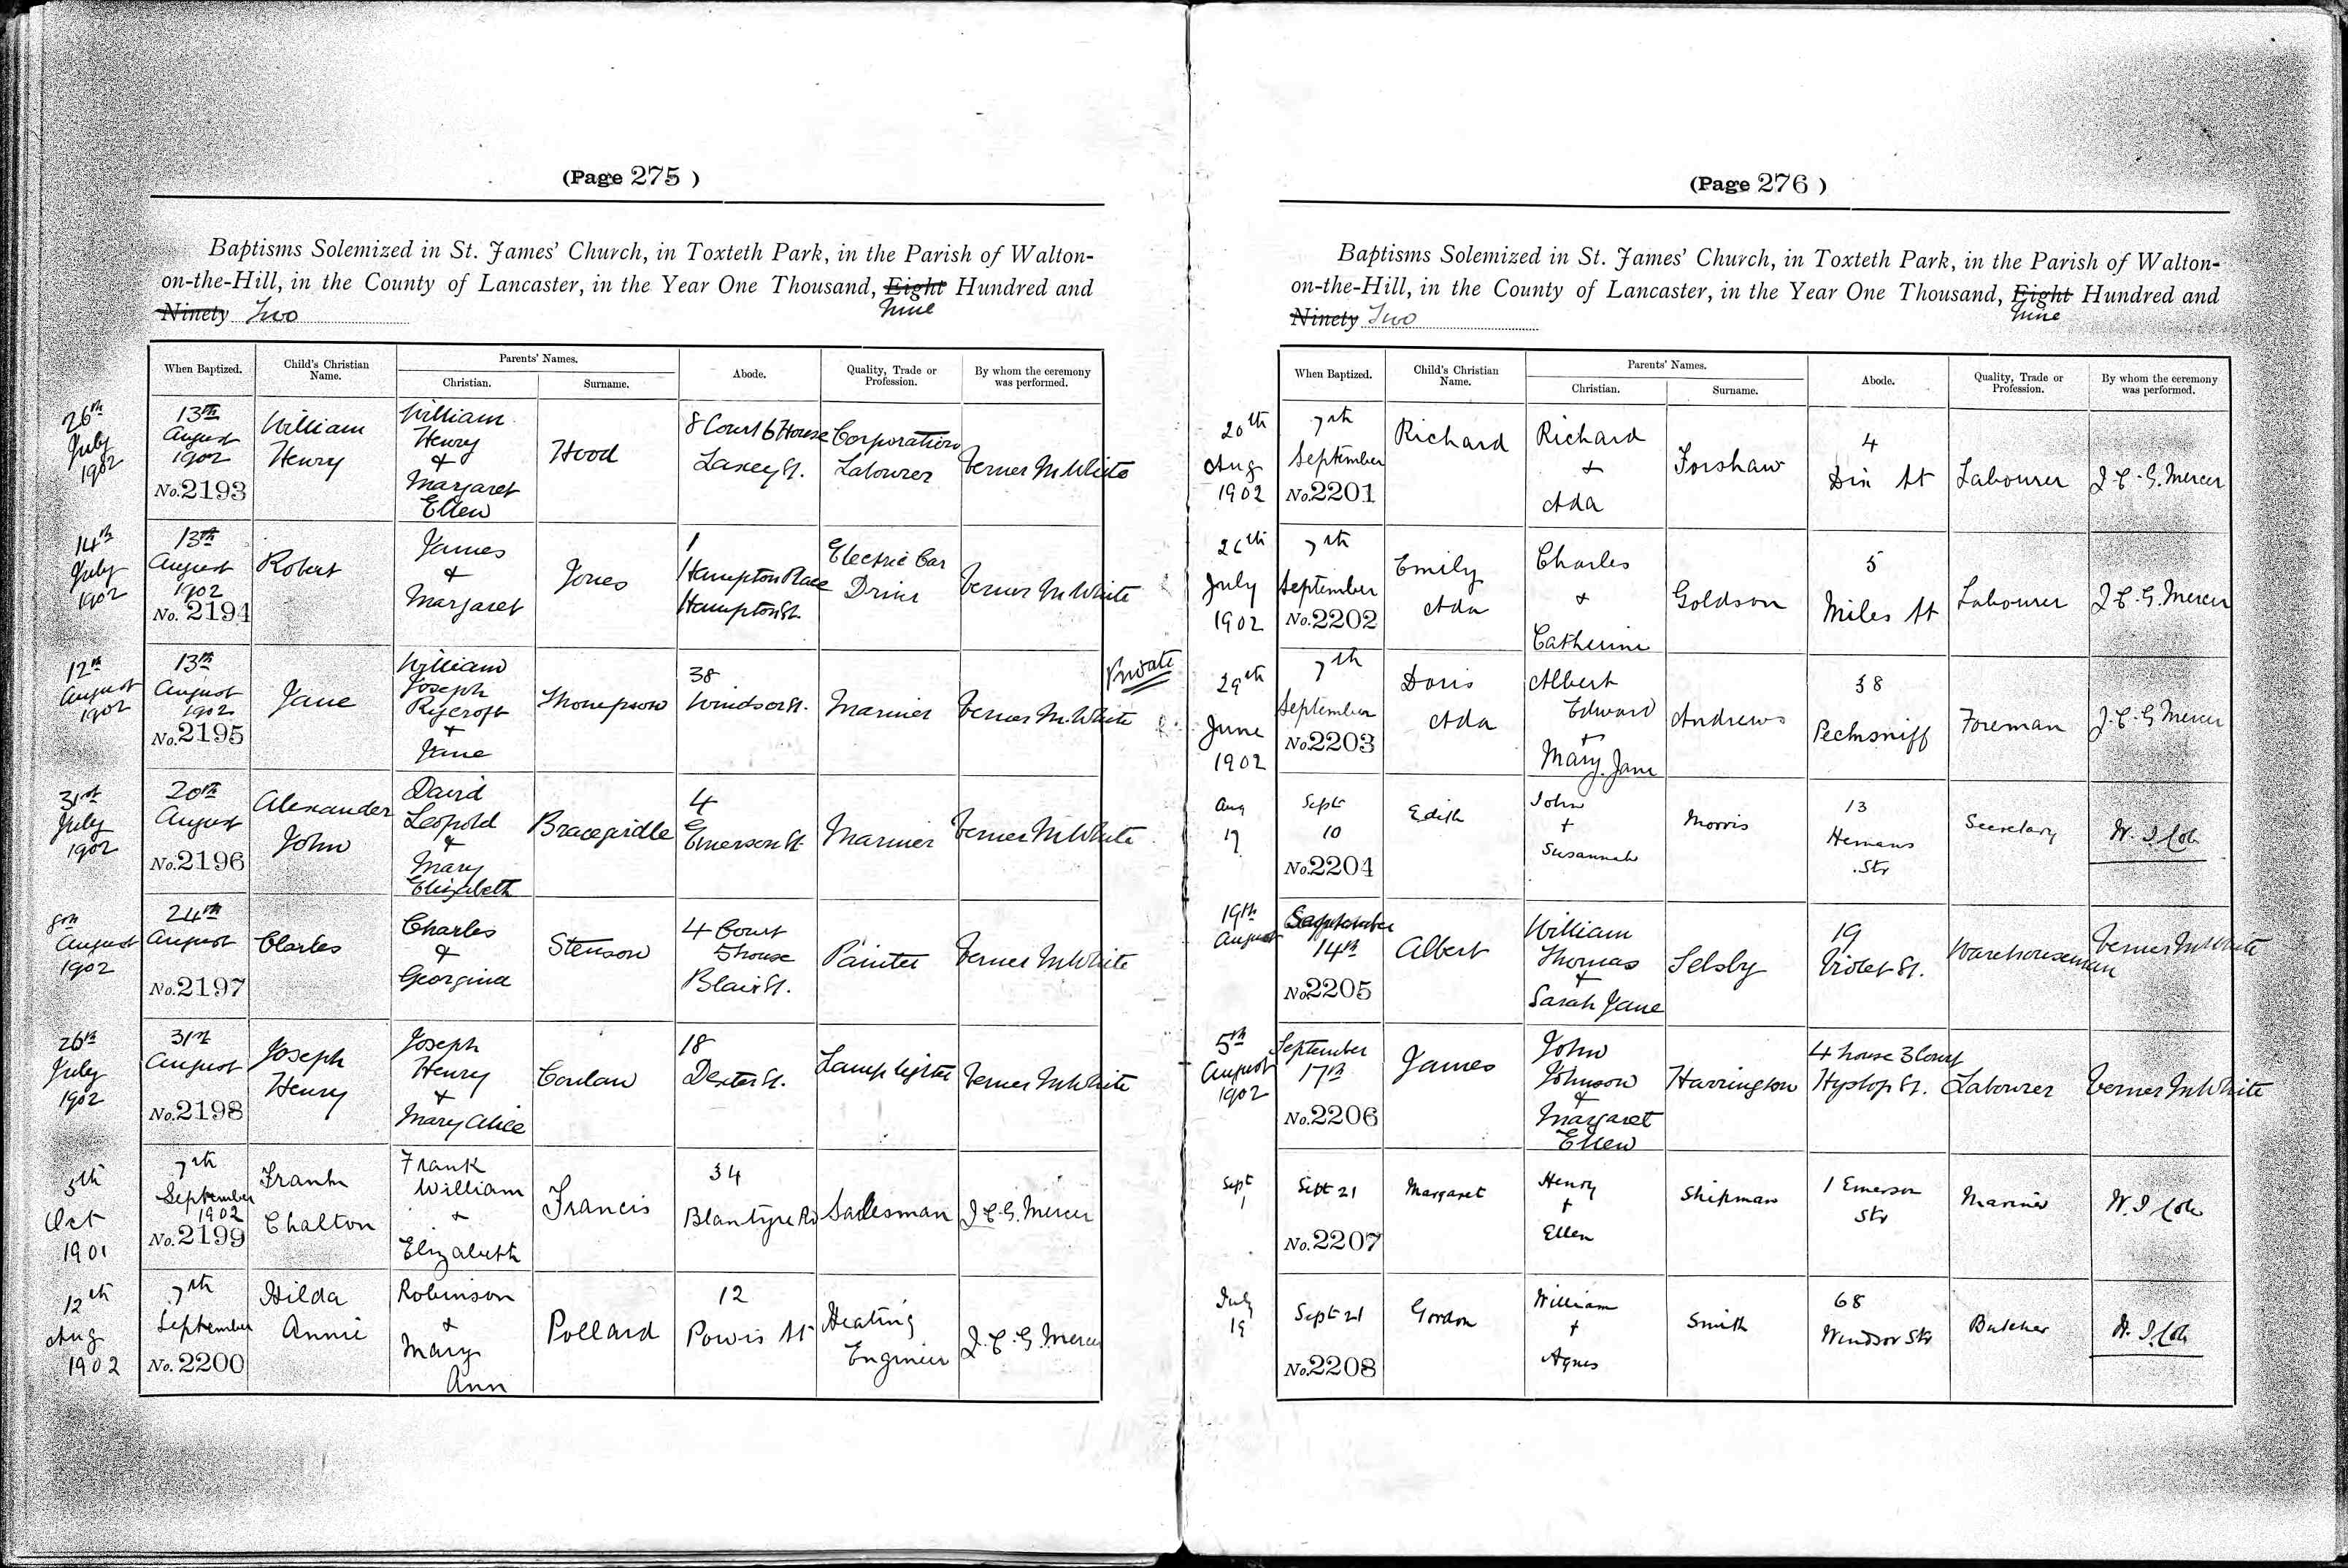 (Page 275 )
Baptisms Solemized in St. James' Church, in Toxteth Park, in the Parish of Walton-
on-the-Hill, in the County of Lancaster, in the Year One Thousand, Eight Hundred and
Nine
Ninety Two
When Baptized.
Child's Christian
Name.
Parents' Names.
Christian.
Surname.
Abode.
Quality, Trade or
Profession.
By whom the ceremony
was performed.
26th
July
1902
13th
August
1902
No. 2193
William
Henry
William
Henry
&
Margaret
Ellen
Hood
8 Court 6 House
Laxey St.
Corporation
Labourer
Verner M White
14th
July
1902
13th
August
1902
No. 2194
Robert
James
&
Margaret
Jones
1
Hampton Place
Hampton St.
Electric Car
Driver
Verner M White
12th
August
1902
13th
August
1902
No. 2195
Jane
William
Joseph
Rycroft
+
Jane
Thompson
38
Windsor St.
Mariner
Verner M. White
Private
31st
July
1902
20th
August
No. 2196
Alexander
John
David
Leopold
&
Mary
Elizabeth
Bracegirdle
4
Emerson St.
Mariner
Verner M White
8th
August
1902
24th
August
No. 2197
Charles
Charles
&
Georgina
Stenson
4 Court
5 house
Blair St.
Painter
Verner M White
26th
July
1902
31st
August
No. 2198
Joseph
Henry
Joseph
Henry
+
Mary Alice
Conlan
18
Dexter St.
Lamplighter
Verner M White
5th
Oct
1901
7th
September
1902
No. 2199
Frank
Chalton
Frank
William
+
Elizabeth
Francis
34
Blantyre Rd
Salesman
J. C. G. Mercer
12th
Aug
1902
7th
September
No. 2200
Hilda
Annie
Robinson
+
Mary
Ann
Pollard
12
Powis St
Heating
Engineer
J. C. G. Mercer
(Page 276 )
Baptisms Solemized in St. James' Church, in Toxteth Park, in the Parish of Walton-
on-the-Hill, in the County of Lancaster, in the Year One Thousand, Eight Hundred and
Nine
Ninety Two
When Baptized.
Child's Christian
Name.
Parents' Names.
Christian.
Surname.
Abode.
Quality, Trade or
Profession.
By whom the ceremony
was performed.
20th
Aug
1902
7th
September
No. 2201
Richard
Richard
+
Ada
Forshaw
4
St
Labourer
J. C. G. Mercer
26th
July
1902
7th
September
No. 2202
Emily
Ada
Charles
+
Catherine
Goldson
5
Miles St
Labourer
J. C. G. Mercer
29th
June
1902
7th
September
No. 2203
Doris
Ada
Albert
Edward
+
Mary Jane
Andrews
38
Pecksniff
Foreman
J. C. G Mercer
Aug
17
Sept
10
No. 2204
Edith
John
+
Susannah
Morris
13
Hemans
Str
Secretary
19th
August
September
14th
No. 2205
Albert
William
Thomas
&
Sarah Jane
Selsby
19
Violet St.
Warehouseman
Verner M White
5th
August
1902
September
17th
No. 2206
James
John
Johnson
&
Margaret
Ellen
Harrington
4 house 3 Court
Hyslop St.
Labourer
Verner M White
Sept
1
Sept 21
No. 2207
Margaret
Henry
+
Ellen
Shipman
1 Emerson
Str
Mariner
July
19
Sept 21
No. 2208
Gordon
William
+
Agnes
Smith
68
Windsor Str
Butcher